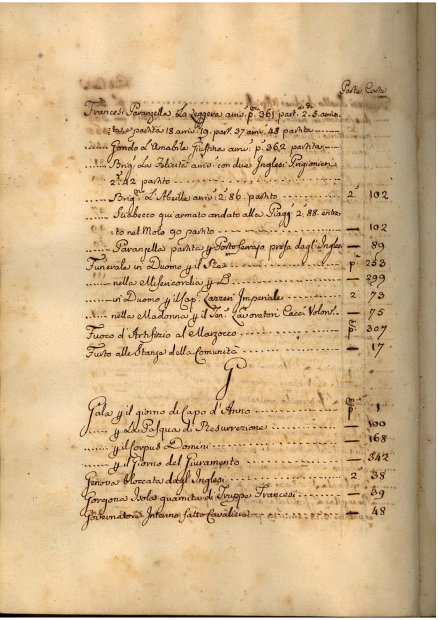 Parte Carte
Francesi Paranzella La Leggera arriv. p.ma 361 part. 2.da 5 arriv.
ta e partita 18 arriv. 19. part. 37 arriv. 48 partita
Gondola L'Amabile arriva p.ma 362 partita
Brig. La Felicità arriv. con due Inglesi Prigionieri
2. 42 partito
Brig. L'Abeille arriv. 2. 86. partito 2 102
Sciabecco qui armato andato alla Piagg. 2. 88. entra
to nel Molo 90 partito — 102
Paranzella partita p Porto Ferrajo presa dagl'Inglesi — 89
Funerale in Duomo p il p.ma 253
nella Misericordia p — 299
in Duomo p il Cap. Imperiale 2 73
nella Madonna p il Cacci Volon. — 75
Fuoco d'Artifizio al Marzocco p.ma 307
Furto alle Stanze della Comunità — 17
G
Gala p il giorno di Capo d'Anno p.ma 1
p La Pasqua di Resurrezione — 100
p il Corpus Domini — 168
p il Giorno del Giuramento — 342
Genova bloccata dagl'Inglesi 2 38
Gorgona Isola guarnita di Truppe Francesi — 39
Governatore Interino fatto Cavaliere — 48